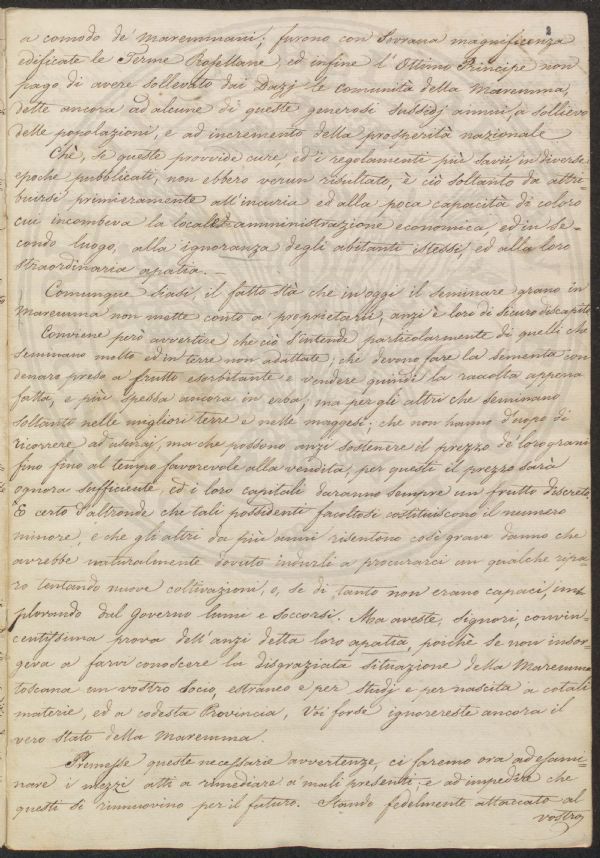 2
a comodo de' Maremmani; furono con Sovrana magnificenza
edificate le Terme Rosellane, ed infine l'Ottimo Principe non
pago di avere sollevato dai Dazj le comunità della Maremma,
dette ancora ad alcune di queste generosi sussidj annui, a sollievo
delle popolazioni, e ad incremento della prosperità nazionale
Chè, se queste provvide cure, ed i regolamenti più savii in diverse
epoche pubblicati, non ebbero verun risultato, è ciò soltanto da attri-
buirsi, primieramente all'incuria ed alla poca capacità di coloro
cui incombeva la locale amministrazione economica, ed in se-
condo luogo, alla ignoranza degli abitanti stessi, ed alla loro
straordinaria apatia.
Comunque siasi, il fatto stà che in oggi il seminare grano in
Maremma non mette conto a' proprietarii, anzi è loro di sicuro discapito
Conviene però avvertire che ciò s'intende, particolarmente di quelli che
seminano molto ed in terre non adattate, che devono fare la sementa con
denaro preso a frutto esorbitante e vendere quindi la raccolta appena
fatta, e più spesso ancora in erba; ma per gli altri che seminano
soltanto nelle migliori terre e nelle maggesi; che non hanno d'uopo di
ricorrere ad usuraj, ma che possono anzi sostenere il prezzo de' loro grani
fino fino al tempo favorevole alla vendita, per questi il prezzo sarà
ognora sufficiente, ed i loro capitali daranno sempre un frutto discreto.
È certo d'altronde che tali possidenti facoltosi costituiscono il numero
minore, e che gli altri da più anni risentono così grave danno che
avrebbe naturalmente dovuto indurli a procurarci un qualche ripa-
ro tentando nuove coltivazioni, o, se di tanto non erano capaci, im-
plorando dal Governo lumi e soccorsi. Ma aveste, Signori, convin-
centissima prova dell'anzi detta loro apatia, poichè se non insor-
geva a farvi conoscere la disgraziata situazione della Maremma
toscana un vostro Socio, estraneo e per studj e per nascita a cotali
materie, ed a codesta Provincia, Voi forse ignorereste ancora il
vero stato della Maremma.
Premesse queste necessarie avvertenze, ci faremo ora ad esami-
nare i mezzi atti a rimediare a' mali presenti, e ad impedire che
questi si rinnuovino per il futuro. Stando fedelmente attaccato al
vostro